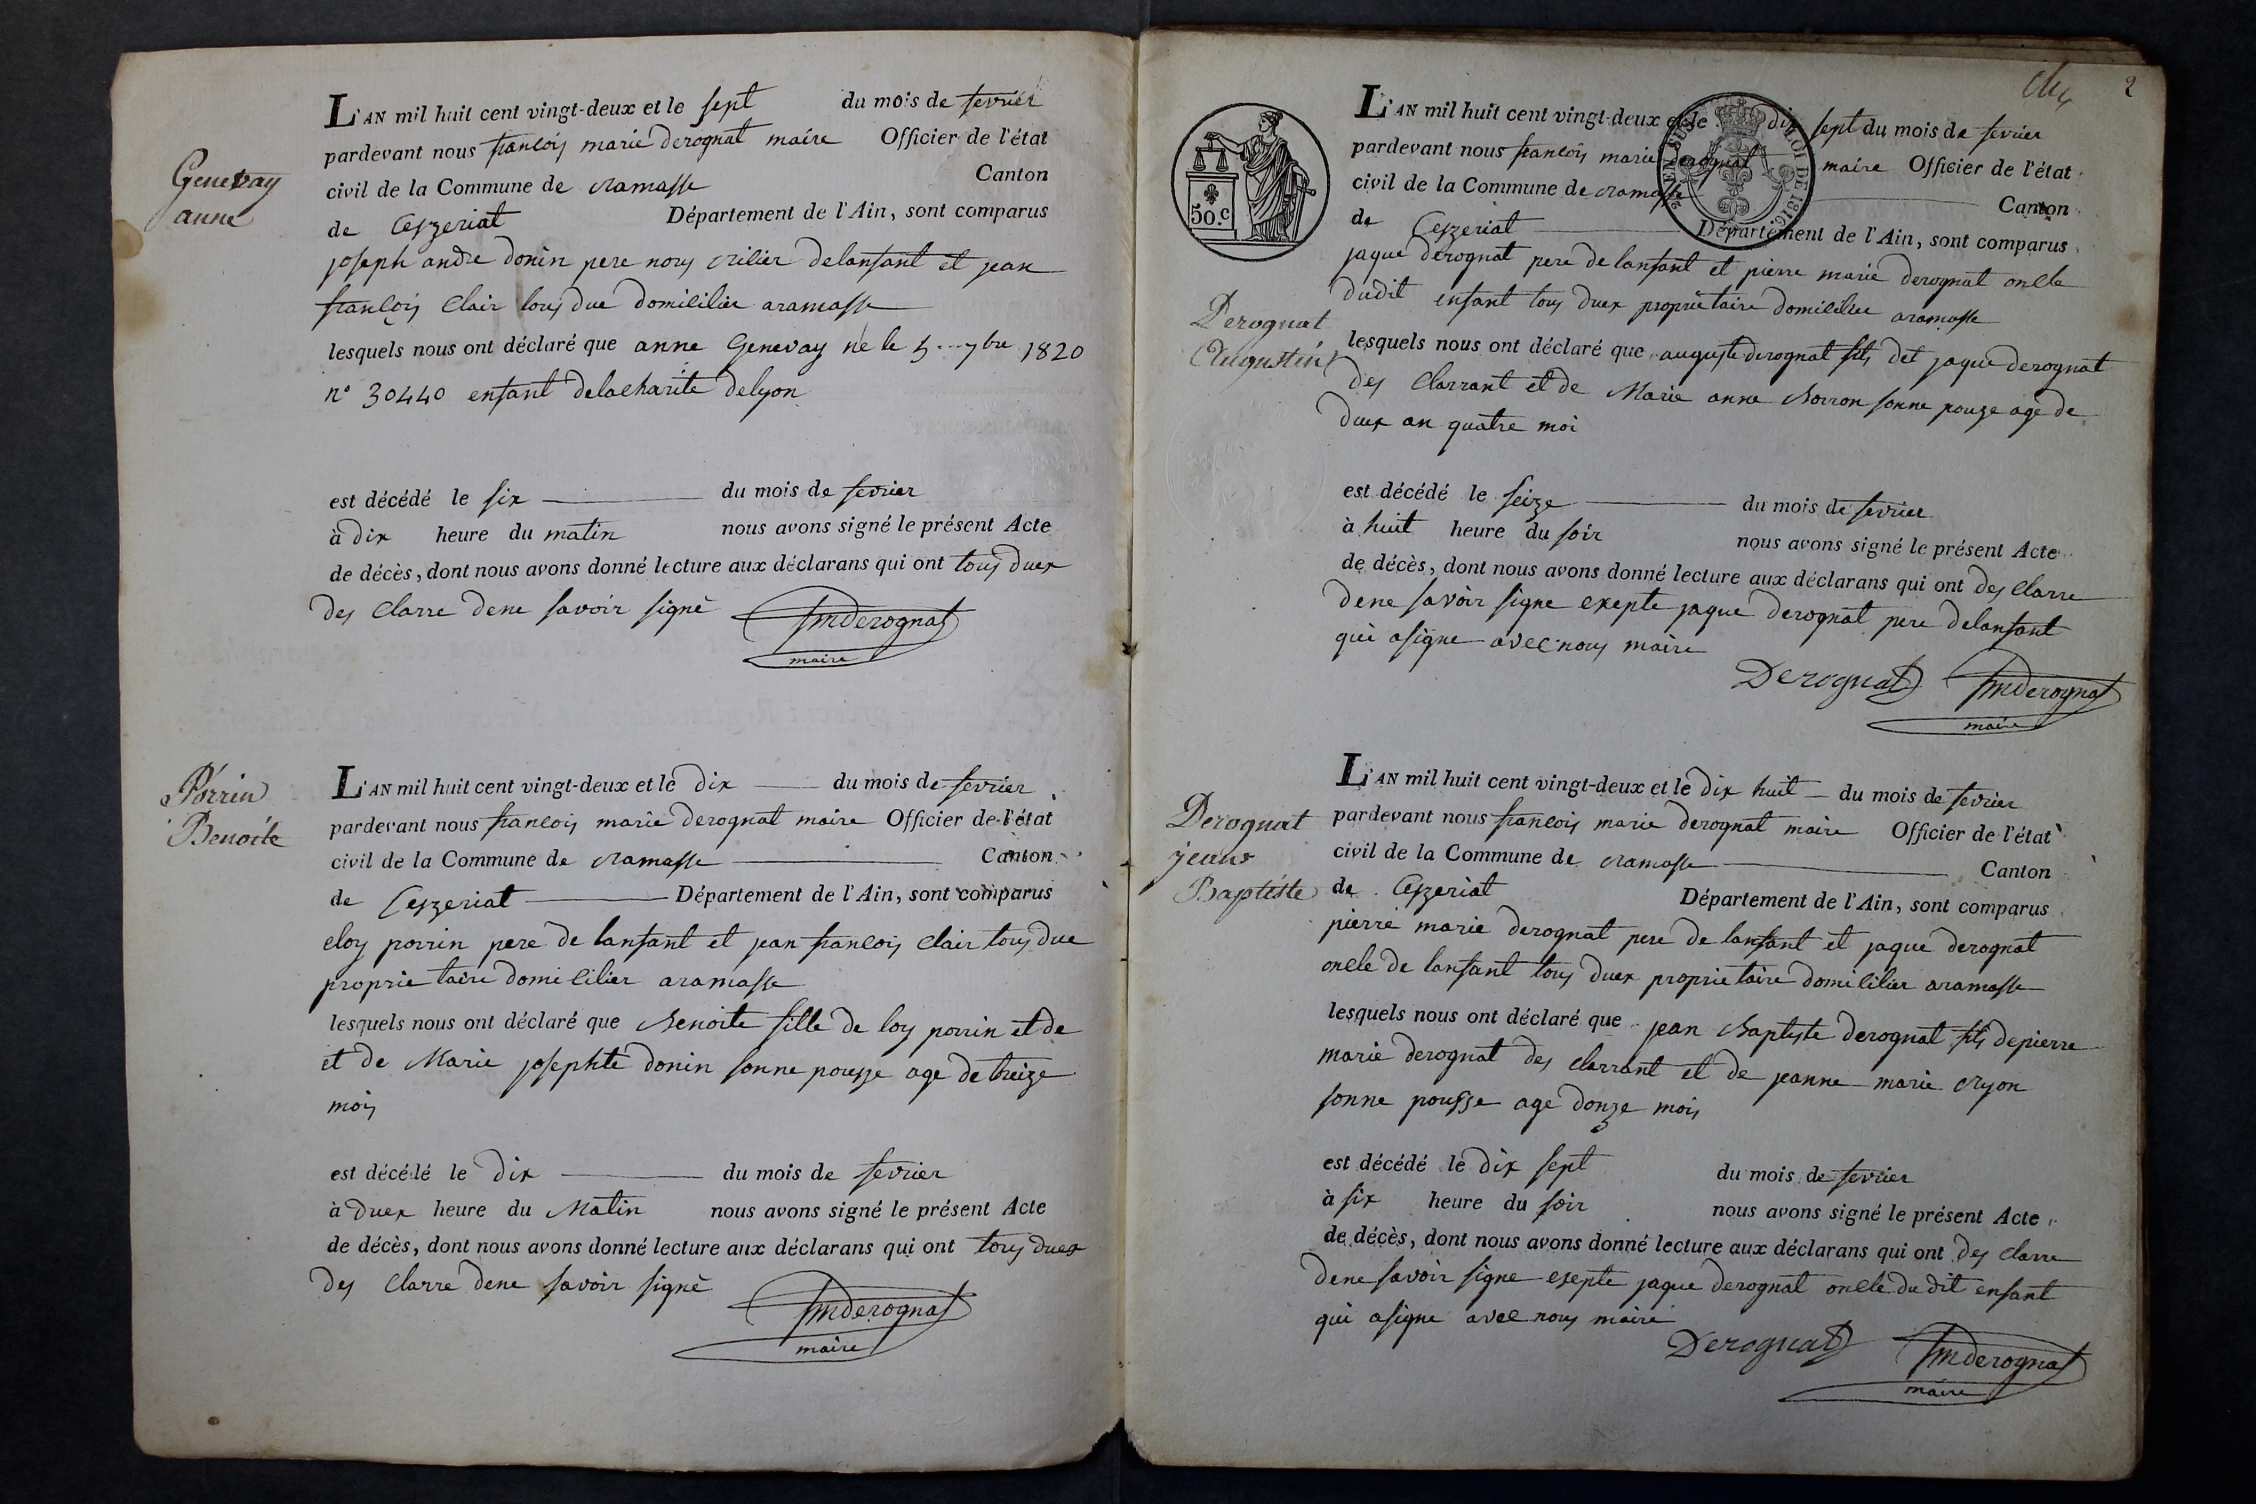 Genevay
anne
L'AN mil huit cent vingt-deux et le sept du mois de fevrier
pardevant nous francois marie derognat maire Officier de l'état
civil de la Commune de ramasse Canton
de Ceyzeriat Département de l'Ain, sont comparus
joseph andre donin pere nous delanfant et jean
francois Clair tous due domicilier aramasse
lesquels nous ont déclaré que anne Genevay né le 5 7bre 1820
n° 30440 enfant delacharite delyon
est décédé le six du mois de fevrier
à dix heure du matin nous avons signé le présent Acte
de décès, dont nous avons donné lecture aux déclarans qui ont tous duex
des clarre dene savoir signé
fmderognat
maire
Porrin
Benoite
L'AN mil huit cent vingt-deux et le dix du mois de fevrier
pardevant nous francois marie derognat maire Officier de l'état
civil de la Commune de ramasse Canton
de Ceyzeriat Département de l'Ain, sont comparus
eloy porrin pere de lanfant et jean francois clair tous due
proprietaire domicilier aramasse
lesquels nous ont déclaré que Benoite fille de loy porrin et de
et de Marie josephte donin sonne pousse age de treize
mois
est décédé le dix du mois de fevrier
à duex heure du Matin nous avons signé le présent Acte
de décès, dont nous avons donné lecture aux déclarans qui ont tous duex
des clarre dene savoir signé
fmderognat
maire
2
50.c
LOI DE 1816
Derognat
Augustin
L'AN mil huit cent vingt-deux et le dix sept du mois de fevrier
pardevant nous francois marie derognat maire Officier de l'état
civil de la Commune de ramasse Canton
de Ceyzeriat Département de l'Ain, sont comparus
jaque derognat pere de lanfant et pierre marie derognat oncle
dudit enfant tous duex proprietaire domicilier aramasse
lesquels nous ont déclaré que auguste derognat fils det jaque derognat
des clarrant et de Marie anne Borron sonne pouze age de
duex an quatre moi
est décédé le seize du mois de fevrier
à huit heure du soir nous avons signé le présent Acte
de décès, dont nous avons donné lecture aux déclarans qui ont des clarre
dene savoir signe exepte jaque derognat pere delanfant
qui asigne avec nous maire
Derognat fmderognat
maire
Derognat
jean
Baptiste
L'AN mil huit cent vingt-deux et le dix huit du mois de fevrier
pardevant nous francois marie derognat maire Officier de l'état
civil de la Commune de ramasse Canton
de Ceyzeriat Département de l'Ain, sont comparus
pierre marie derognat pere de lanfant et jaque derognat
oncle de lanfant tous duex proprietaire domicilier aramasse
lesquels nous ont déclaré que jean Baptiste derognat fils depierre
marie derognat des clarrant et de jeanne marie
sonne pousse age donze mois
est décédé le dix sept du mois de fevrier
à six heure du soir nous avons signé le présent Acte
de décès, dont nous avons donné lecture aux déclarans qui ont des clarre
dene savoir signe exepte jaque derognat oncle du dit enfant
qui asigne avec nous maire
Derognat fmderognat
maire